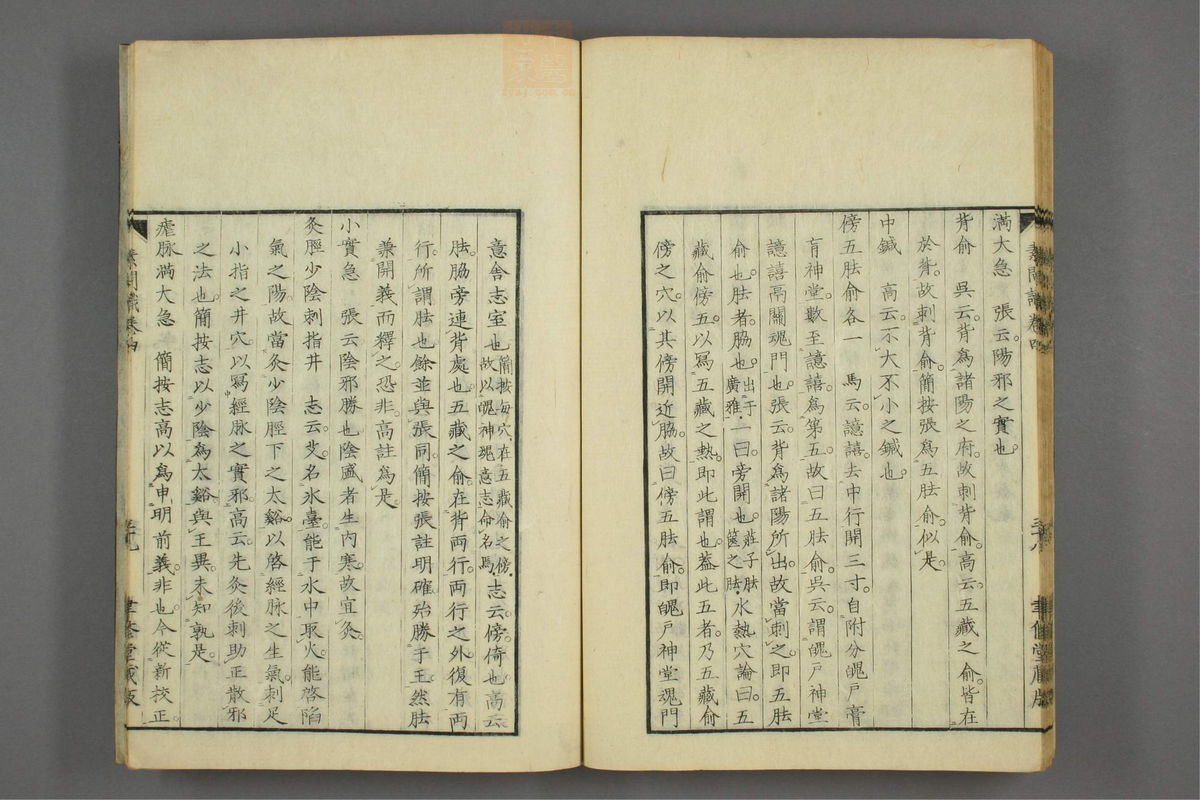 滿大急　張云。陽邪之實也
背俞　吳云。背爲諸陽之府。故刺背俞。高云。五藏之俞。皆在
於背。故刺背俞。簡按張爲五胠俞。似是。
中鍼　高云。不大不小之鍼也。
傍五胠俞各一　馬云。譩譆去中行開三寸。自附分魄戶膏
肓神堂。數至譩譆。爲第五。故曰五胠俞。吳云。謂魄戶神堂
譩譆鬲關魂門也。張云。背爲諸陽所出。故當刺之。卽五胠
俞也。胠者。脇也。出于廣雅。一曰。旁開也。莊子胠篋之胠。水熱穴論曰。五
藏俞傍五。以寫五藏之熱。卽此謂也。葢此五者。乃五藏俞
傍之穴。以其傍開近脇。故曰傍五胠俞。卽魄戶神堂魂門
意舍志室也。簡按每穴在五藏俞之傍。故以魄神魂意志命名。馬。志云。傍倚也。高云
胠。脇旁連背處也。五藏之俞。在背兩行。兩行之外。復有兩
行。所謂胠也。餘並與張同。簡按張註明確。殆勝于王。然胠
兼開義而釋之。恐非。高註爲是。
小實急　張云。陰邪勝也。陰盛者生內寒。故宜灸。
灸脛少陰刺指井　志云。艾名氷臺。能于水中取火。能啓陷
氣之陽。故當灸少陰脛下之太谿。以啓經脉之生氣。刺足
小指之井穴。以寫經脉之實邪。高云。先灸後刺。助正散邪
之法也。簡按志以少陰爲太谿。與王異。未知孰是。
瘧脉滿大急　簡按志高以爲申明前義。非也。今從新校正。
素問識卷四
三十九
聿修堂藏版